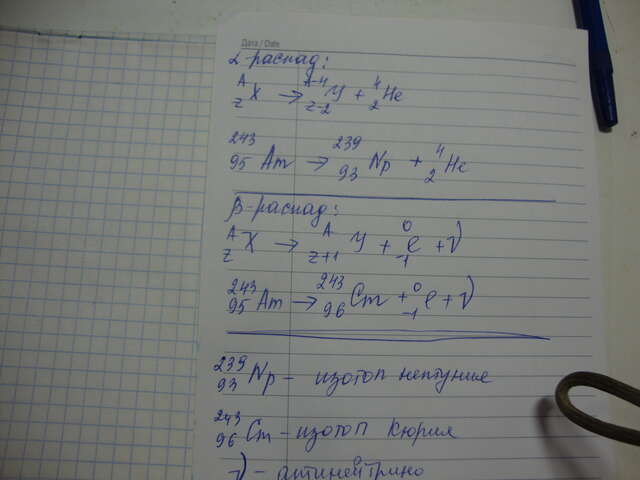 Дата / Date
α-распад:
ᴬ_Z X → ᴬ⁻⁴_Z-2 Y + ⁴₂He
²⁴³₉₅Am → ²³⁹₉₃Np + ⁴₂He
β-распад:
ᴬ_Z X → ᴬ_Z+1 Y + ⁰₋₁e + ν
²⁴³₉₅Am → ²⁴³₉₆Cm + ⁰₋₁e + ν
²³⁹₉₃Np - изотоп нептуния
²⁴³₉₆Cm - изотоп кюрия
ν - антинейтрино